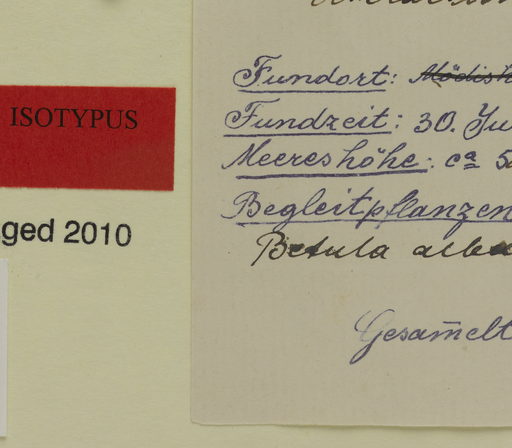 ISOTYPUS
ged 2010
Fundort:
Fundzeit: 30. Ju
Meereshöhe: ca 5
Begleitpflanzen
Betula alba
Gesam̄elt